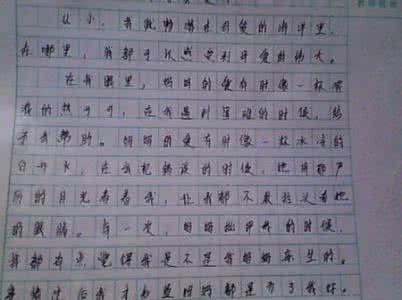 从小,我就沐浴在母爱的海洋里.
在哪里,我都可以感受到母爱的伟大。
在我眼里,妈妈的爱有时像一杯
的热,在我遇到困难的时候,给
予我帮助。妈妈的爱有时像一杯冰冷的
白开水,在我犯错误的时候,她用那严
厉的目光看着我,让我都不敢抬头看她
的眼睛。有一次,妈妈批评我的时候,
我都有点觉得我是不是我妈妈亲生的。
后我才知道妈妈都是为了我好。